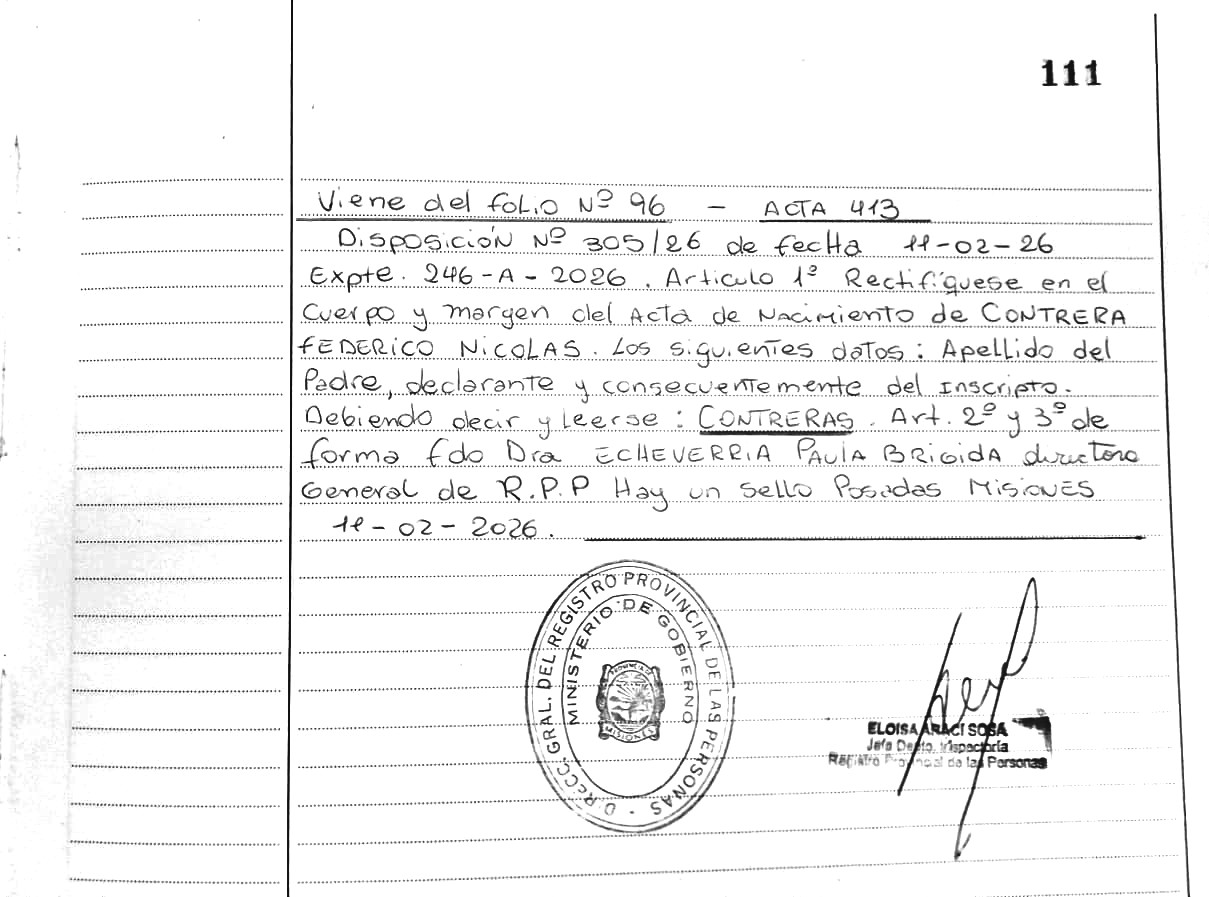 111
Viene del folio Nº 96 - ACTA 413
Disposición Nº 305/26 de fecha 11-02-26
Expte. 246-A-2026. Articulo 1º Rectifíquese en el
Cuerpo y margen del Acta de Nacimiento de CONTRERA
FEDERICO NICOLAS. Los siguientes datos: Apellido del
Padre, declarante y consecuentemente del Inscripto.
Debiendo decir y leerse: CONTRERAS. Art. 2º y 3º de
forma fdo Dra ECHEVERRIA PAULA BRIGIDA directora
General de R.P.P Hay un sello Posadas Misiones
11-02-2026.
DIRECC. GRAL. DEL REGISTRO PROVINCIAL DE LAS PERSONAS -
MINISTERIO DE GOBIERNO
PROVINCIA DE
MISIONES
ELOISA ARACI SOSA
Jefa Depto. Inspectoría
Registro Provincial de las Personas